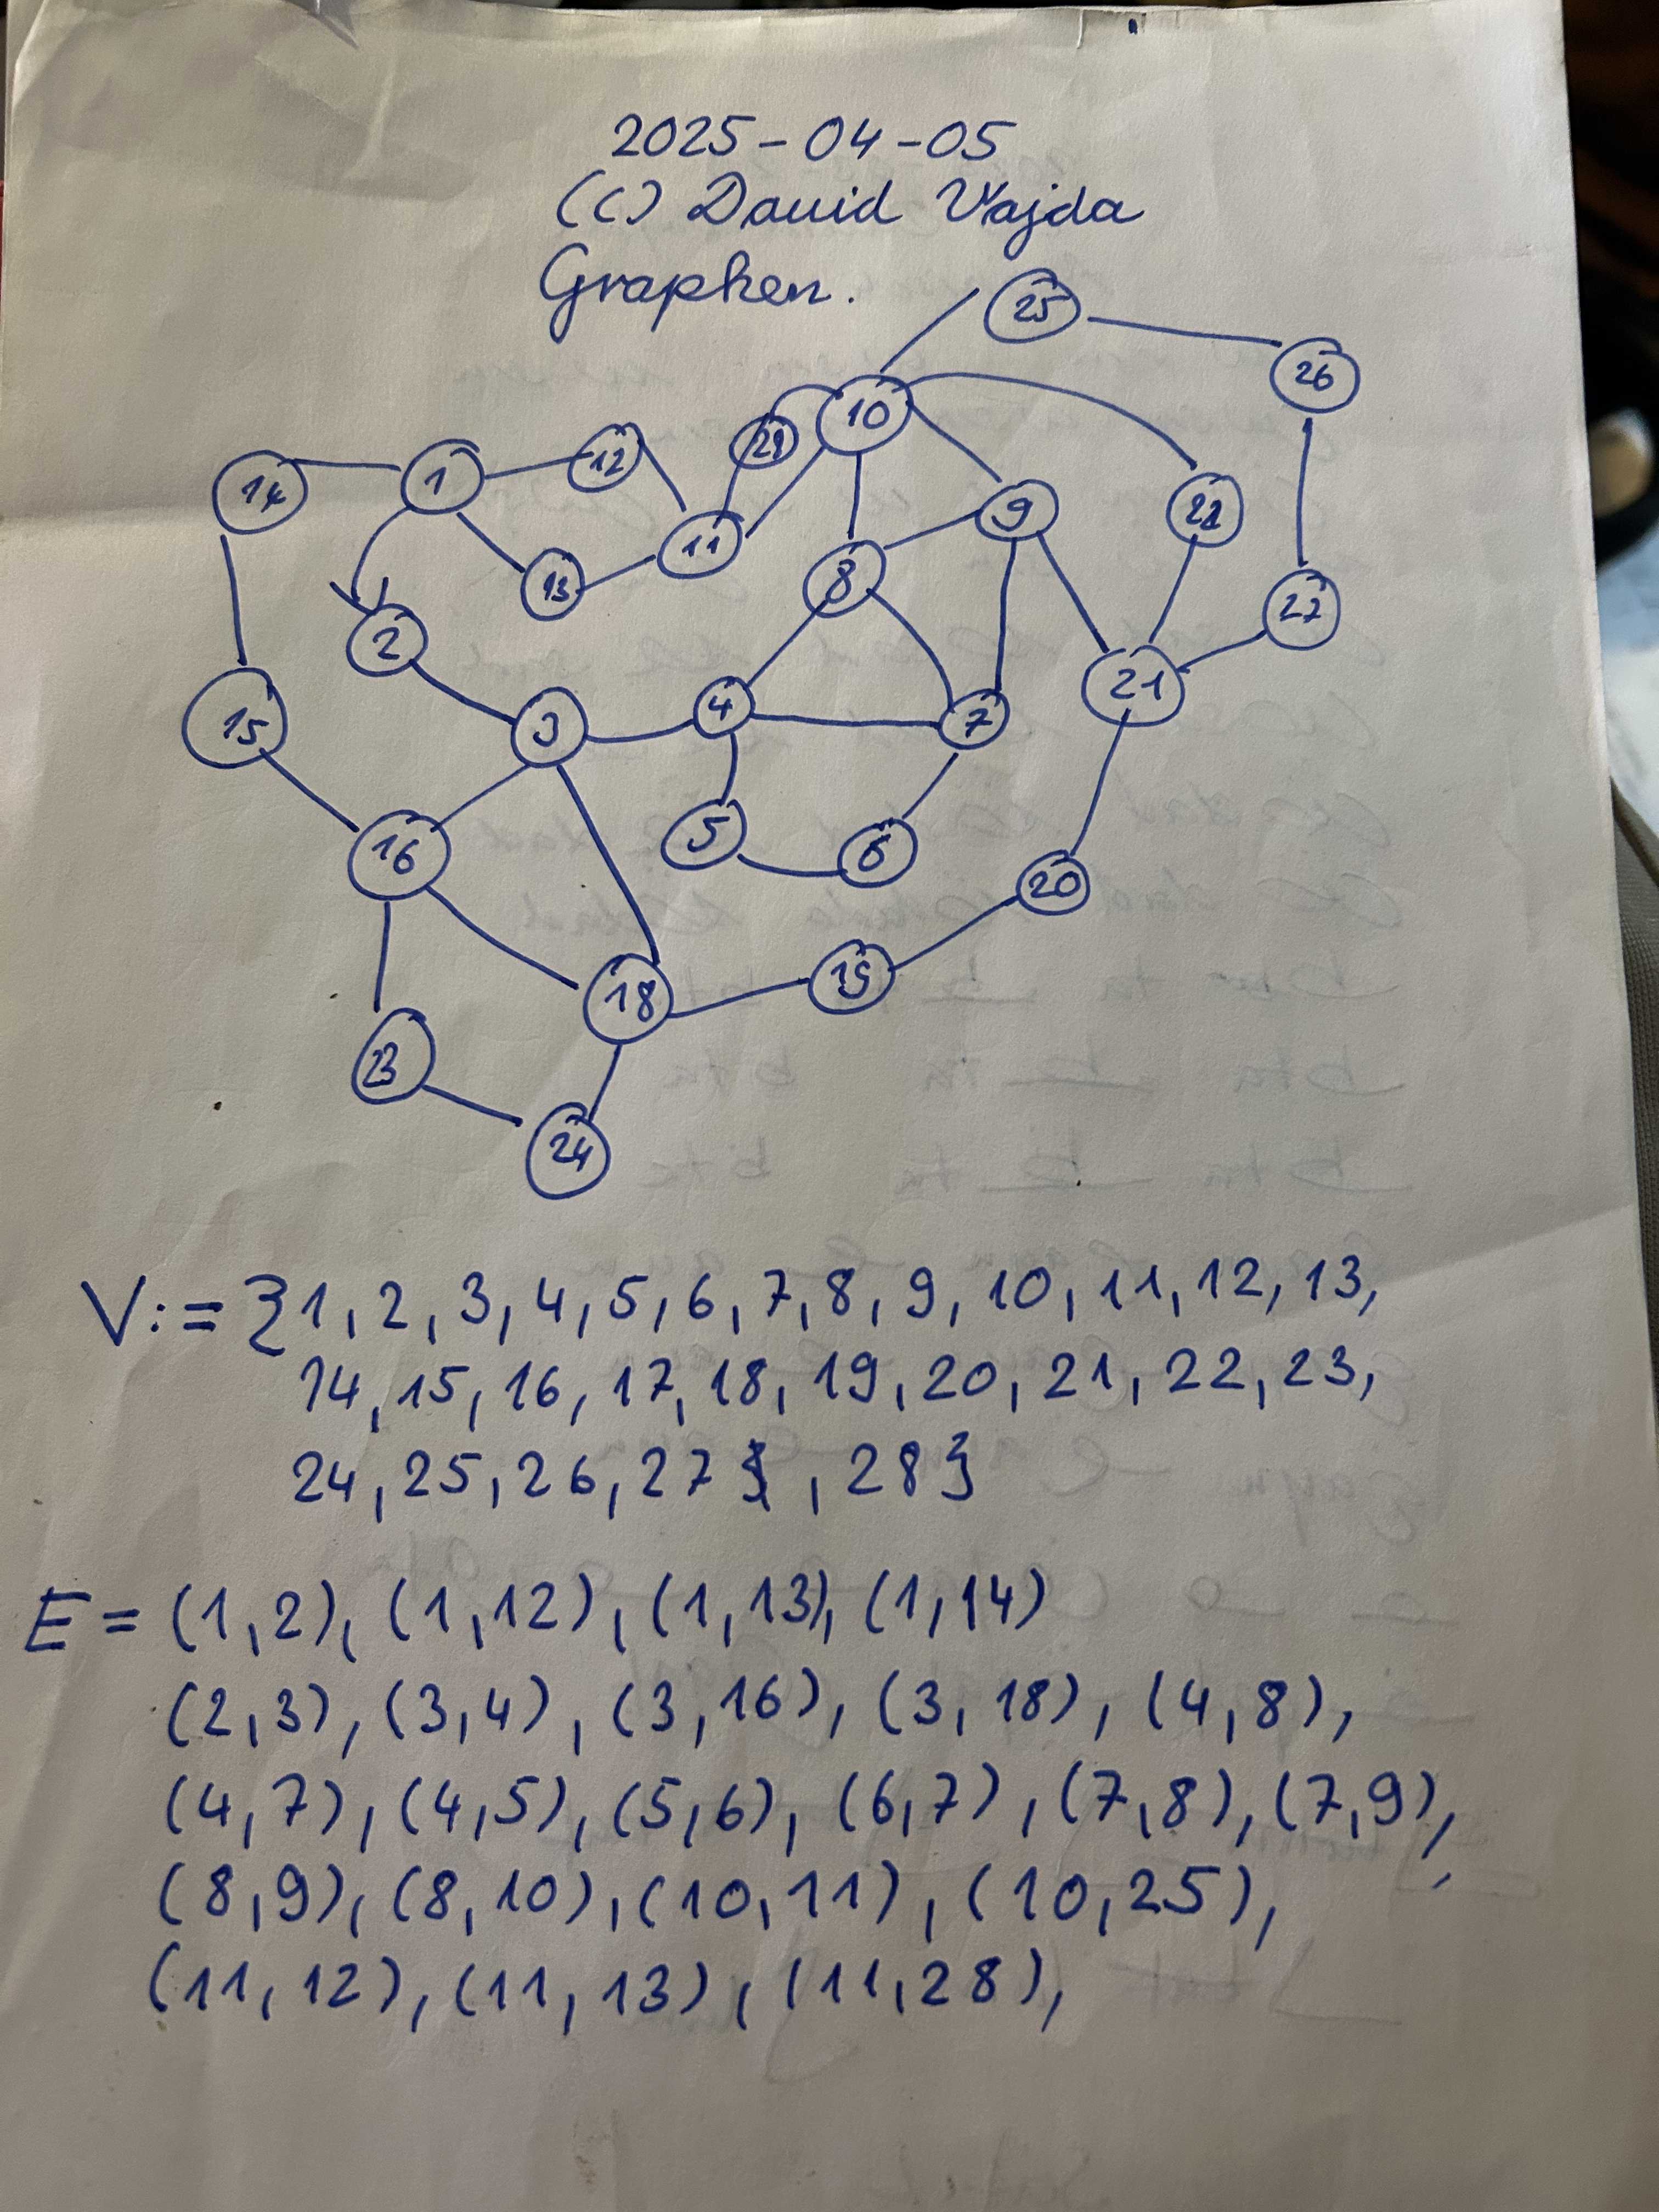 2025-04-05
(C) David Vajda
Graphen.
25
26
10
12
14
1
9
11
13
8
27
2
21
4
15
3
7
5
16
6
20
19
18
23
24
V:={1,2,3,4,5,6,7,8,9,10,11,12,13,
14,15,16,17,18,19,20,21,22,23,
24,25,26,27},28}
E=(1,2),(1,12),(1,13),(1,14)
(2,3),(3,4),(3,16),(3,18),(4,8),
(4,7),(4,5),(5,6),(6,7),(7,8),(7,9),
(8,9),(8,10),(10,11),(10,25),
(11,12),(11,13),(11,28),